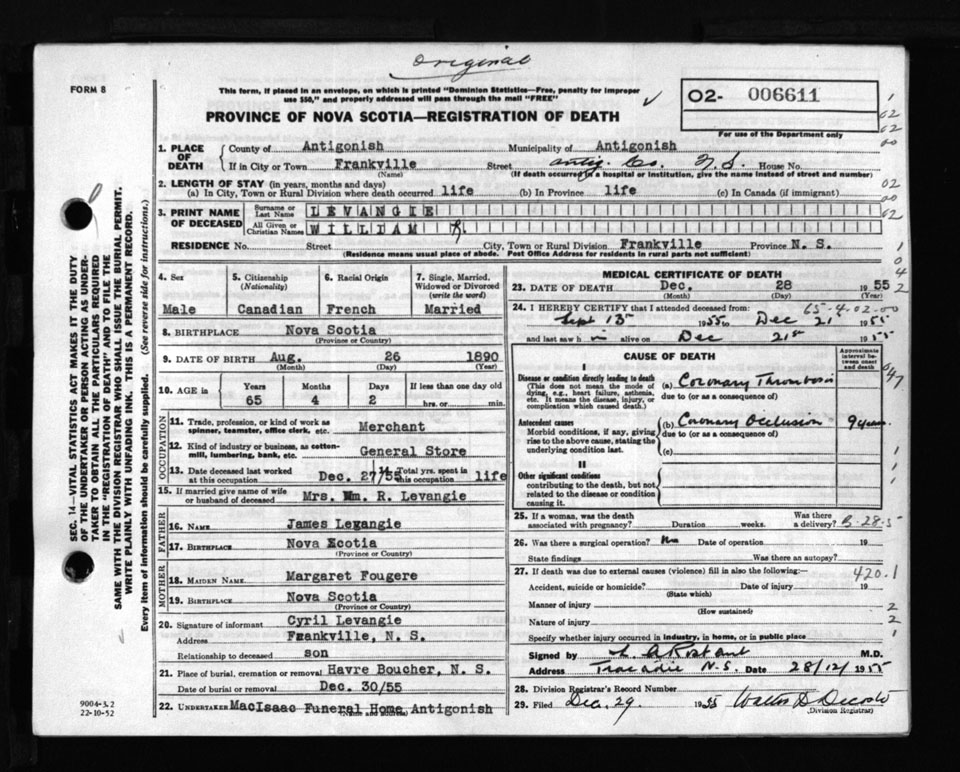 Original
FORM 8
This form, if placed in an envelope, on which is printed "Dominion Statistics—Free, penalty for improper
use $50," and properly addressed will pass through the mail "FREE"
PROVINCE OF NOVA SCOTIA—REGISTRATION OF DEATH
02- 006611
For use of the Department only
1. PLACE OF DEATH
County of Antigonish Municipality of Antigonish
If in City or Town Frankville Street Antig. Co. N.S. House No.
(Name) (If death occurred in a hospital or institution, give the name instead of street and number)
2. LENGTH OF STAY (in years, months and days)
(a) In City, Town or Rural Division where death occurred life (b) In Province life (c) In Canada (if immigrant)
3. PRINT NAME OF DECEASED
Surname or Last Name LEVANGIE
All Given or Christian Names WILLIAM R.
RESIDENCE No. Street City, Town or Rural Division Frankville Province N. S.
(Residence means usual place of abode. Post Office Address for residents in rural parts not sufficient)
4. Sex 5. Citizenship (Nationality) 6. Racial Origin 7. Single, Married, Widowed or Divorced (write the word)
Male Canadian French Married
8. BIRTHPLACE Nova Scotia
(Province or Country)
9. DATE OF BIRTH Aug. 26 1890
(Month) (Day) (Year)
10. AGE in Years Months Days If less than one day old
65 4 2 hrs. or min.
OCCUPATION
11. Trade, profession, or kind of work as spinner, teamster, office clerk, etc. Merchant
12. Kind of industry or business, as cotton-mill, lumbering, bank, etc. General Store
13. Date deceased last worked at this occupation Dec. 27/55 14. Total yrs. spent in this occupation life
15. If married give name of wife or husband of deceased Mrs. Wm. R. Levangie
FATHER
16. NAME James Levangie
17. BIRTHPLACE Nova Scotia
(Province or Country)
MOTHER
18. MAIDEN NAME Margaret Fougere
19. BIRTHPLACE Nova Scotia
(Province or Country)
20. Signature of informant Cyril Levangie
Address Frankville, N. S.
Relationship to deceased son
21. Place of burial, cremation or removal Havre Boucher, N. S.
Date of burial or removal Dec. 30/55
22. UNDERTAKER MacIsaac Funeral Home, Antigonish
(Name and Address)
MEDICAL CERTIFICATE OF DEATH
23. DATE OF DEATH Dec. 28 1955
(Month) (Day) (Year)
65-4-02-00
24. I HEREBY CERTIFY that I attended deceased from:
Sept 15 1955 to Dec 21 1955
and last saw him alive on Dec 21st 1955
CAUSE OF DEATH
Approximate interval between onset and death
I
Disease or condition directly leading to death
(This does not mean the mode of dying, e.g., heart failure, asthenia, etc. It means the disease, injury, or complication which caused death.)
(a) Coronary Thrombosis
due to (or as a consequence of)
Antecedent causes
Morbid conditions, if any, giving rise to the above cause, stating the underlying condition last.
(b) Coronary Occlusion 9 years
due to (or as a consequence of)
(c)
II
Other significant conditions
contributing to the death, but not related to the disease or condition causing it.
25. If a woman, was the death associated with pregnancy? Duration weeks. Was there a delivery? B-28-5
26. Was there a surgical operation? No Date of operation 19
State findings Was there an autopsy?
27. If death was due to external causes (violence) fill in also the following:— 420.1
Accident, suicide or homicide? Date of injury 19
(State which)
Manner of injury
(How sustained)
Nature of injury
Specify whether injury occurred in industry, in home, or in public place
Signed by M.D.
Address Tracadie N.S. Date 28/12/ 1955
28. Division Registrar's Record Number
29. Filed Dec. 29 1955 Walter D
(Division Registrar)
SEC. 14—VITAL STATISTICS ACT MAKES IT THE DUTY
OF THE UNDERTAKER OR PERSON ACTING AS UNDER-
TAKER TO OBTAIN ALL THE PARTICULARS REQUIRED
IN THE "REGISTRATION OF DEATH" AND TO FILE THE
SAME WITH THE DIVISION REGISTRAR WHO SHALL ISSUE THE BURIAL PERMIT.
WRITE PLAINLY WITH UNFADING INK. THIS IS A PERMANENT RECORD.
Every item of information should be carefully supplied. (See reverse side for instructions.)
9004-3.2
22-10-52